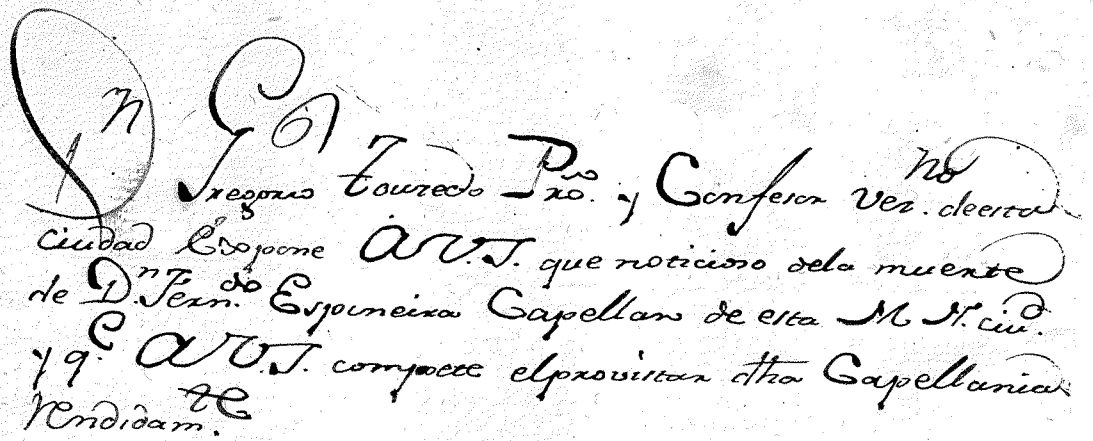 Dn Gregorio Touredo Pro. y Confesor Vez.no de esta
ciudad Expone A V.S. que noticioso dela muerte
de D.n Fern.do Espineira Capellan de esta M. N. ciu.d
y q.e A V.S. compete el provistar dha Capellania
Rendidam.te